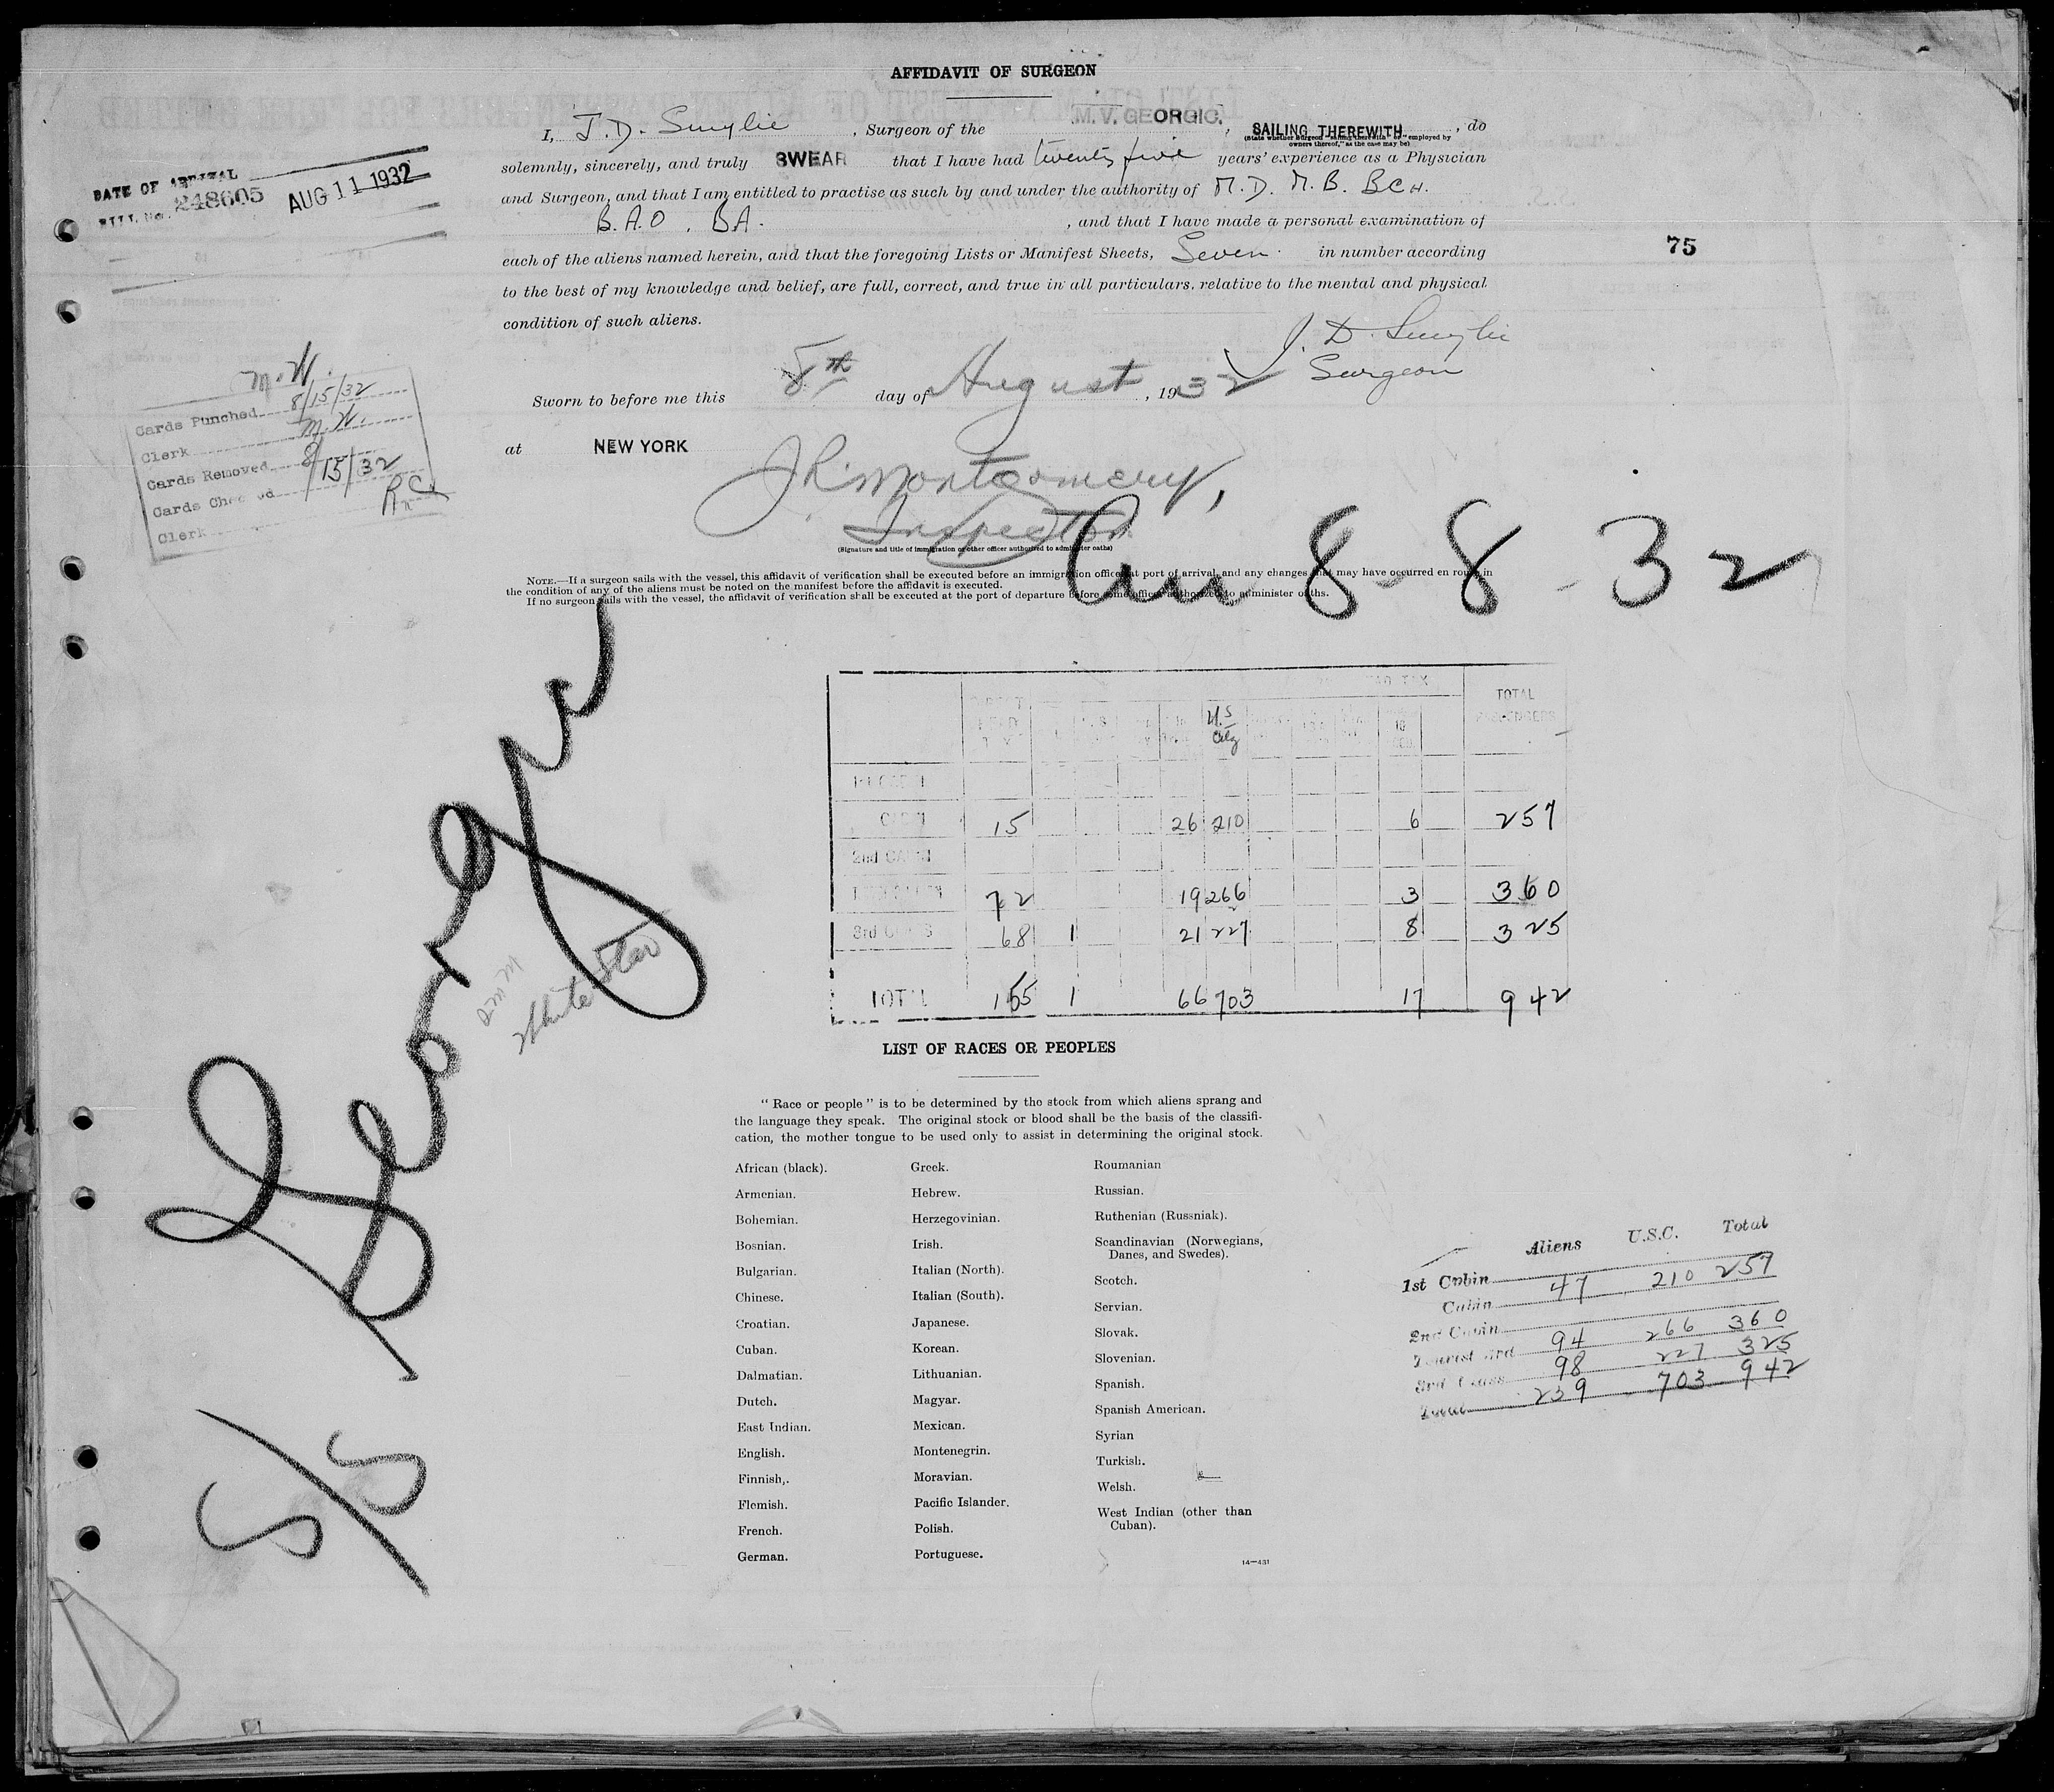 AFFIDAVIT OF SURGEON
I, J. D. Smylie, Surgeon of the M.V. GEORGIC, SAILING THEREWITH, do
(State whether Surgeon "sailing therewith" or "employed by
owners thereof," as the case may be)
solemnly, sincerely, and truly SWEAR that I have had twenty five years' experience as a Physician
and Surgeon, and that I am entitled to practise as such by and under the authority of M.D. M.B. BCH.
B.A.O. BA. , and that I have made a personal examination of
each of the aliens named herein, and that the foregoing Lists or Manifest Sheets, Seven in number according
to the best of my knowledge and belief, are full, correct, and true in all particulars, relative to the mental and physical
condition of such aliens.
J. D. Smylie
Surgeon
Sworn to before me this 8th day of August, 1932
at NEW YORK
J R Montgomery,
Inspector
(Signature and title of immigration or other officer authorized to administer oaths)
DATE OF ARRIVAL
BILL No. 248605 AUG 11 1932
75
M.W.
Cards Punched 8/15/32
Clerk M.W.
Cards Removed 8/15/32
Cards Checked
Clerk
8-8-32
NOTE.—If a surgeon sails with the vessel, this affidavit of verification shall be executed before an immigration officer at port of arrival, and any changes that may have occurred en route in
the condition of any of the aliens must be noted on the manifest before the affidavit is executed.
If no surgeon sails with the vessel, the affidavit of verification shall be executed at the port of departure before some officer authorized to administer oaths.
S/S Georgic
White Star
TOTAL
PASSENGERS
U.S
Citz
CABIN 15 26 210 6 257
2nd CABIN
72 19 266 3 360
3rd CLASS 68 1 21 227 8 325
TOTAL 155 1 66 703 17 942
LIST OF RACES OR PEOPLES
"Race or people" is to be determined by the stock from which aliens sprang and
the language they speak. The original stock or blood shall be the basis of the classifi-
cation, the mother tongue to be used only to assist in determining the original stock.
African (black).
Armenian.
Bohemian.
Bosnian.
Bulgarian.
Chinese.
Croatian.
Cuban.
Dalmatian.
Dutch.
East Indian.
English.
Finnish,.
Flemish.
French.
German.
Greek.
Hebrew.
Herzegovinian.
Irish.
Italian (North).
Italian (South).
Japanese.
Korean.
Lithuanian.
Magyar.
Mexican.
Montenegrin.
Moravian.
Pacific Islander.
Polish.
Portuguese.
Roumanian
Russian.
Ruthenian (Russniak).
Scandinavian (Norwegians,
Danes, and Swedes).
Scotch.
Servian.
Slovak.
Slovenian.
Spanish.
Spanish American.
Syrian
Turkish.
Welsh.
West Indian (other than
Cuban).
14—431
Aliens U.S.C. Total
1st Cabin
Cabin 47 210 257
2nd Cabin
Tourist 3rd 94 266 360
3rd Class 98 227 325
Total 239 703 942